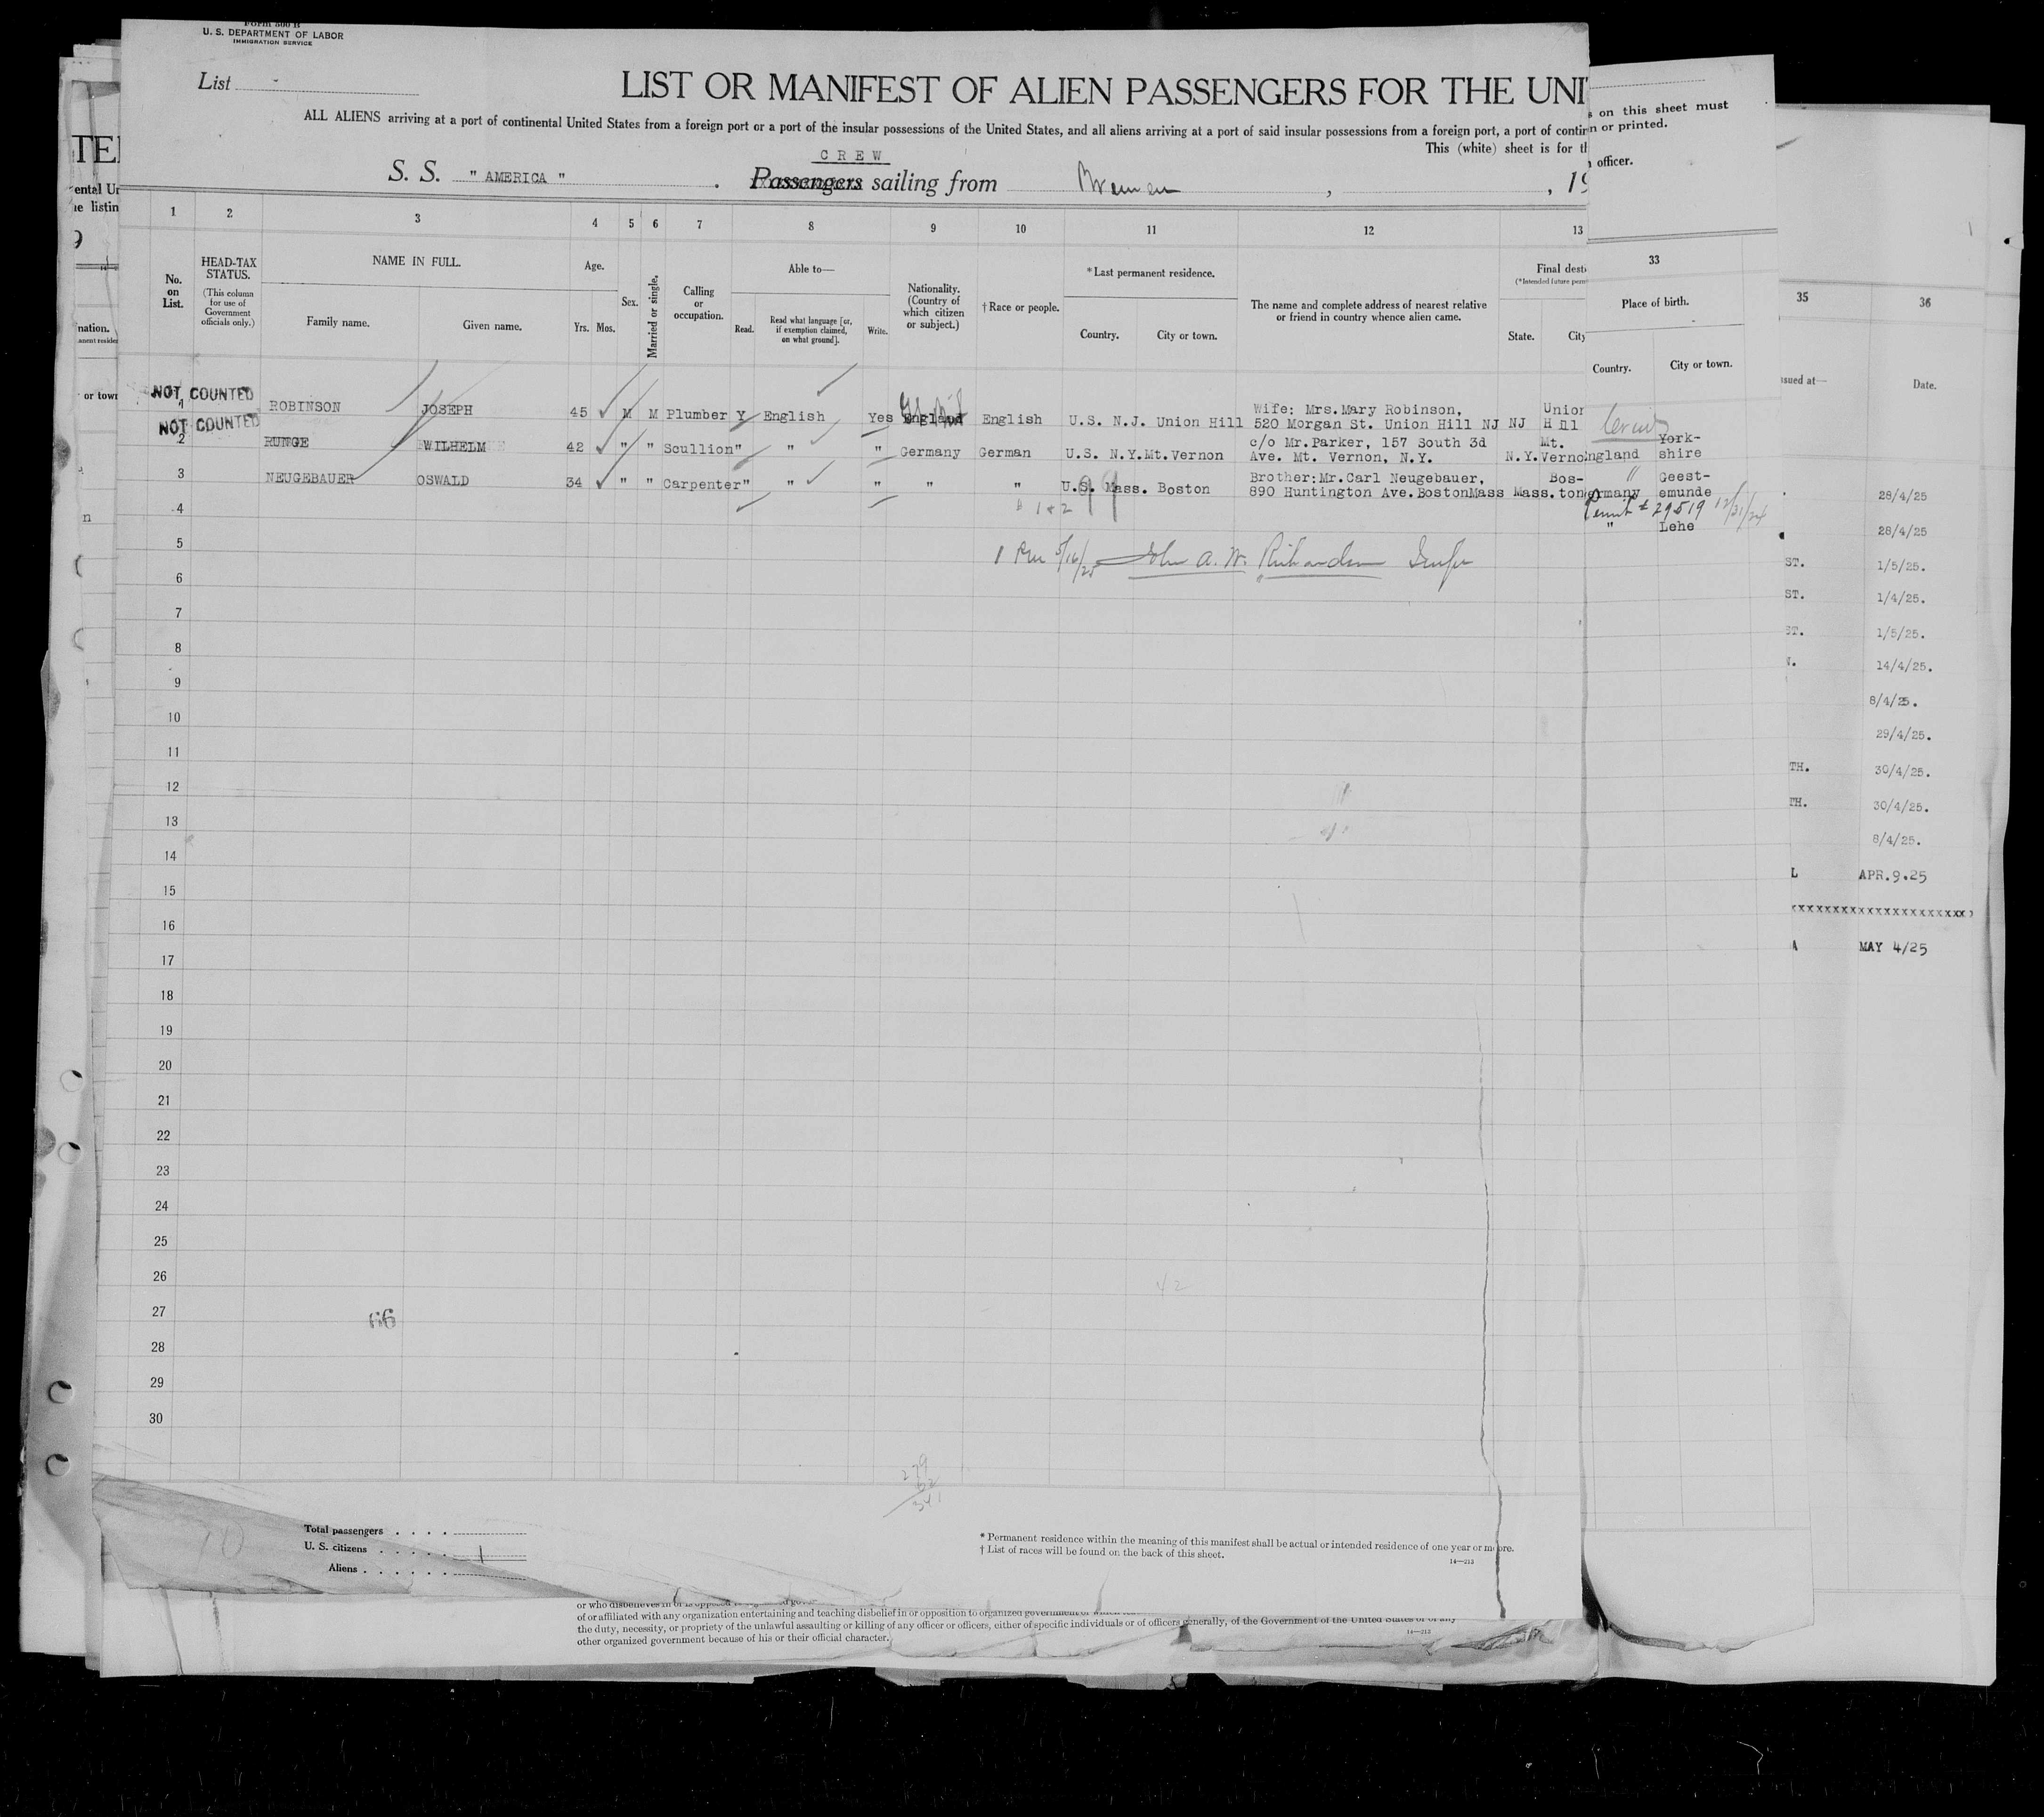 Form 500 B
U. S. DEPARTMENT OF LABOR
IMMIGRATION SERVICE
List
LIST OR MANIFEST OF ALIEN PASSENGERS FOR THE UNI
ALL ALIENS arriving at a port of continental United States from a foreign port or a port of the insular possessions of the United States, and all aliens arriving at a port of said insular possessions from a foreign port, a port of contin
This (white) sheet is for th
CREW
S. S. "AMERICA" Passengers sailing from Bremen , , 19
on this sheet must
n or printed.
officer.
TE
ental Un
ne listin
9
nation.
anent resider
or town
n
1 2 3 4 5 6 7 8 9 10 11 12 13
No. on List.
HEAD-TAX STATUS.
(This column for use of Government officials only.)
NAME IN FULL.
Family name. Given name.
Age.
Yrs. Mos.
Sex.
Married or single.
Calling or occupation.
Able to—
Read. Read what language [or, if exemption claimed, on what ground]. Write.
Nationality. (Country of which citizen or subject.)
† Race or people.
* Last permanent residence.
Country. City or town.
The name and complete address of nearest relative or friend in country whence alien came.
Final desti
(*Intended future perm
State. City
33
Place of birth.
Country. City or town.
35 36
ssued at— Date.
NOT COUNTED
1 ROBINSON JOSEPH 45 M M Plumber Y English Yes England English U.S. N.J. Union Hill Wife: Mrs.Mary Robinson, 520 Morgan St. Union Hill NJ NJ Union Hill
NOT COUNTED
2 RUNGE WILHELM 42 " " Scullion " " " Germany German U.S. N.Y. Mt.Vernon c/o Mr.Parker, 157 South 3d Ave. Mt. Vernon, N.Y. N.Y. Mt. Verno
3 NEUGEBAUER OSWALD 34 " " Carpenter " " " " " U.S. Mass. Boston Brother:Mr.Carl Neugebauer, 890 Huntington Ave.BostonMass Mass. Bos-ton
ngland York-shire
ermany Geest-emunde
Permit # 29519 12/31/24
" Lehe
1 & 2
99
1 Pm 5/16/25 John A. W. Richardson Insp
4
5
6
7
8
9
10
11
12
13
14
15
16
17
18
19
20
21
22
23
24
25
26
27
28
29
30
28/4/25
28/4/25
ST. 1/5/25.
ST. 1/4/25.
ST. 1/5/25.
N. 14/4/25.
8/4/25.
29/4/25.
TH. 30/4/25.
TH. 30/4/25.
8/4/25.
L APR.9.25
xxxxxxxxxxxxxxxxxxxxxx
A MAY 4/25
42
66
279
62
341
10
Total passengers . . . .
U. S. citizens . . . . . . 1
Aliens . . . . . .
* Permanent residence within the meaning of this manifest shall be actual or intended residence of one year or more.
† List of races will be found on the back of this sheet.
14—213
of or affiliated with any organization entertaining and teaching disbelief in or opposition to organized government
the duty, necessity, or propriety of the unlawful assaulting or killing of any officer or officers, either of specific individuals or of officers generally, of the Government of the United States or of any
other organized government because of his or their official character.
14—213